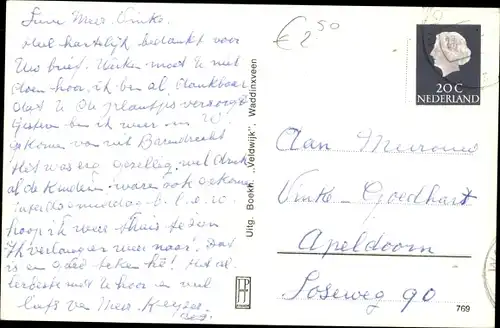 Lieve Mevr. Vinke.
Heel hartelijk bedankt voor
Uw brief. Werken moet U niet
doen hoor, ik ben al dankbaar
dat U de plantjes verzorgt
Gisteren ben ik weer in W.
gekomen van uit Barendrecht
Het was erg gezellig, wel druk
al de kinderen waren ook gekomen
hoop ik weer thuis te zijn
Ik verlang er weer naar! Dat
is een goed teken hè! Het al.
lerbeste met U hoor en veel
liefs van Mevr. Keyzer
€ 2 50
20 C
NEDERLAND
Aan Mevrouw
Vinke-Goedhart
Apeldoorn
Soseweg 90
Uitg. Boekh. „Veldwijk", Waddinxveen
769